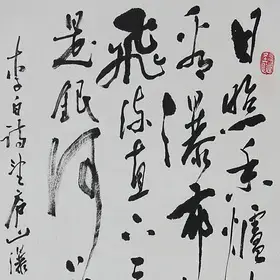 日照香爐
看瀑布
飛流直下三
是銀河
李白詩望廬山瀑